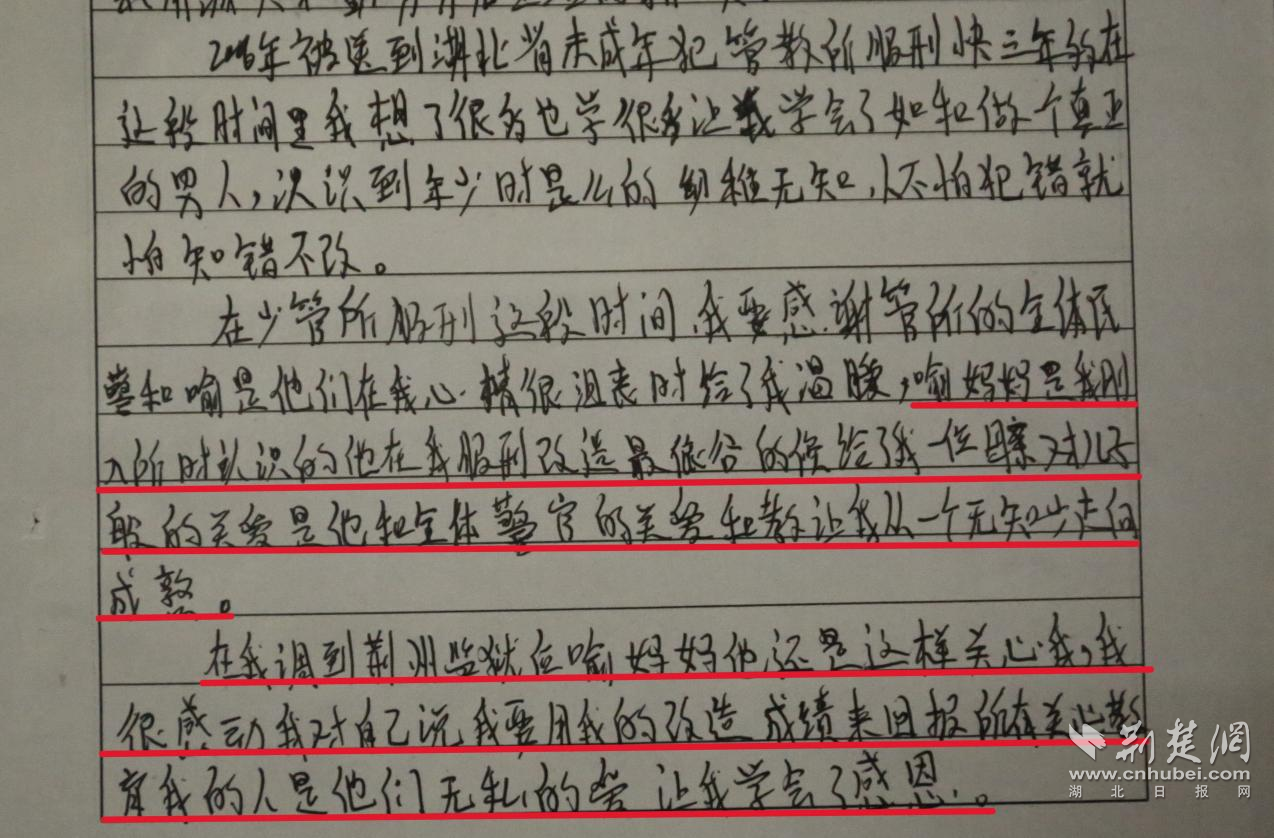 年被送到湖北省未成年犯管教所服刑快三年的在
这段时间里我想了很多也学很多让我学会了如和做个真正
的男人,识到年少时是么的幼稚无知,不怕犯错就
怕知错不改。
在少管所服刑这段时间,我要感谢管所的全体民
警和喻是他们在我心情很沮丧时给了我温暖,喻妈妈是我刚
入所时认识的他在我服刑改造最低谷的候给了我一位对儿子
般的关爱是他和全体警官的关爱和教让我从一个无知少走向
成熟。
在我调到荆州监狱喻妈妈他还是这样关心我,我
很感动我对自己说我要用我的改造成绩来回报所有关心教
育我的人是他们无私的爱让我学会了感恩。
荆楚網
www.cnhubei.com
湖北日报网